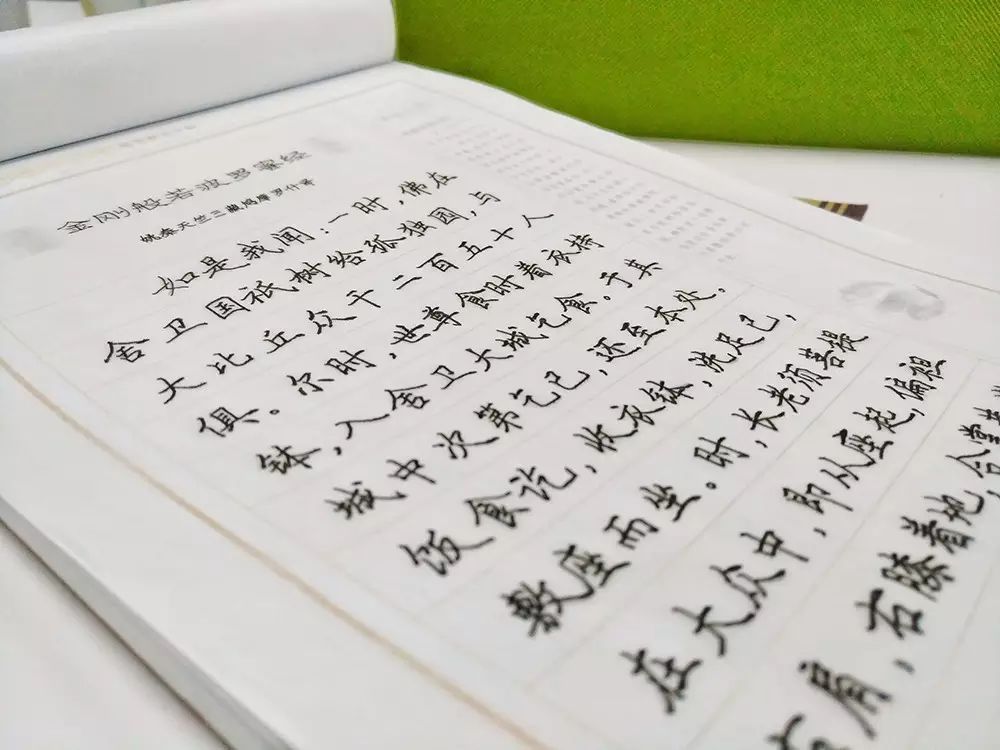 金刚般若波罗蜜经
姚秦天竺三藏鸠摩罗什译
如是我闻：一时，佛在
舍卫国祇树给孤独园，与
大比丘众千二百五十人
俱。尔时，世尊食时着衣持
钵，入舍卫大城乞食。于其
城中次第乞已，还至本处。
饭食讫，收衣钵，洗足已，
敷座而坐。时，长老须菩提
在大众中，即从座起，偏袒
右肩，右膝着地，合掌